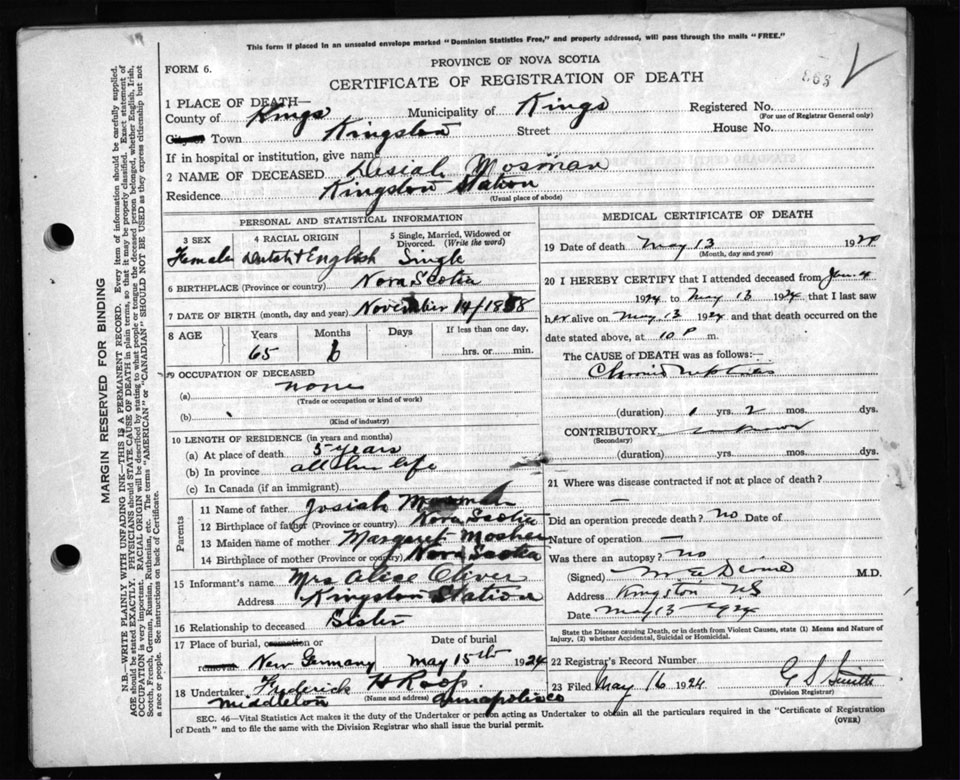 This form if placed in an unsealed envelope marked "Dominion Statistics Free," and properly addressed, will pass through the mails "FREE."
FORM 6.
PROVINCE OF NOVA SCOTIA
CERTIFICATE OF REGISTRATION OF DEATH
863
1 PLACE OF DEATH—
County of Kings Municipality of Kings Registered No.
(For use of Registrar General only)
City or Town Kingston Street House No.
If in hospital or institution, give name
2 NAME OF DECEASED Desiah Mosman
Residence Kingston Station
(Usual place of abode)
PERSONAL AND STATISTICAL INFORMATION
3 SEX 4 RACIAL ORIGIN 5 Single, Married, Widowed or Divorced. (Write the word)
Female Dutch & English Single
6 BIRTHPLACE (Province or country) Nova Scotia
7 DATE OF BIRTH (month, day and year) November 14/1858
8 AGE Years Months Days If less than one day,
65 6 hrs. or min.
9 OCCUPATION OF DECEASED
(a) none
(Trade or occupation or kind of work)
(b)
(Kind of industry)
10 LENGTH OF RESIDENCE (in years and months)
(a) At place of death 5 years
(b) In province all her life
(c) In Canada (if an immigrant)
Parents
11 Name of father Josiah Mosman
12 Birthplace of father (Province or country) Nova Scotia
13 Maiden name of mother Margaret Mosher
14 Birthplace of mother (Province or country) Nova Scotia
15 Informant's name Mrs Alice Oliver
Address Kingston Station
16 Relationship to deceased Sister
17 Place of burial, cremation or removal Date of burial
New Germany May 15th 1924
18 Undertaker Frederick H Roop
(Name and address)
Middleton Annapolis Co
MEDICAL CERTIFICATE OF DEATH
19 Date of death May 13 1924
(Month, day and year)
20 I HEREBY CERTIFY that I attended deceased from Jan 4
1924 to May 13 1924 that I last saw
her alive on May 13 1924 and that death occurred on the
date stated above, at 10 P m.
The CAUSE OF DEATH was as follows:—
Chronic Nephritis
(duration) 1 yrs. 2 mos. dys.
CONTRIBUTORY unknown
(Secondary)
(duration) yrs. mos. dys.
21 Where was disease contracted if not at place of death?
Did an operation precede death? no Date of
Nature of operation —
Was there an autopsy? no
(Signed) M.D.
Address Kingston NS
Date May 13 1924
State the Disease causing Death, or in death from Violent Causes, state (1) Means and Nature of Injury, (2) whether Accidental, Suicidal or Homicidal.
22 Registrar's Record Number
23 Filed May 16 1924 G S Smith
(Division Registrar)
SEC. 46—Vital Statistics Act makes it the duty of the Undertaker or person acting as Undertaker to obtain all the particulars required in the "Certificate of Registration
of Death" and to file the same with the Division Registrar who shall issue the burial permit.
(OVER)
MARGIN RESERVED FOR BINDING
N.B.—WRITE PLAINLY WITH UNFADING INK—THIS IS A PERMANENT RECORD. Every item of information should be carefully supplied.
AGE should be stated EXACTLY. PHYSICIANS should STATE CAUSE OF DEATH in plain terms, so that it may be properly classified. Exact statement of
OCCUPATION is very important. RACIAL ORIGIN will be described by stating to what people or tongue the deceased person belonged, whether English, Irish,
Scotch, French, German, Russian, Ruthenian, etc. The terms "AMERICAN" or "CANADIAN" SHOULD NOT BE USED as they express citizenship but not
a race or people. See instructions on back of Certificate.